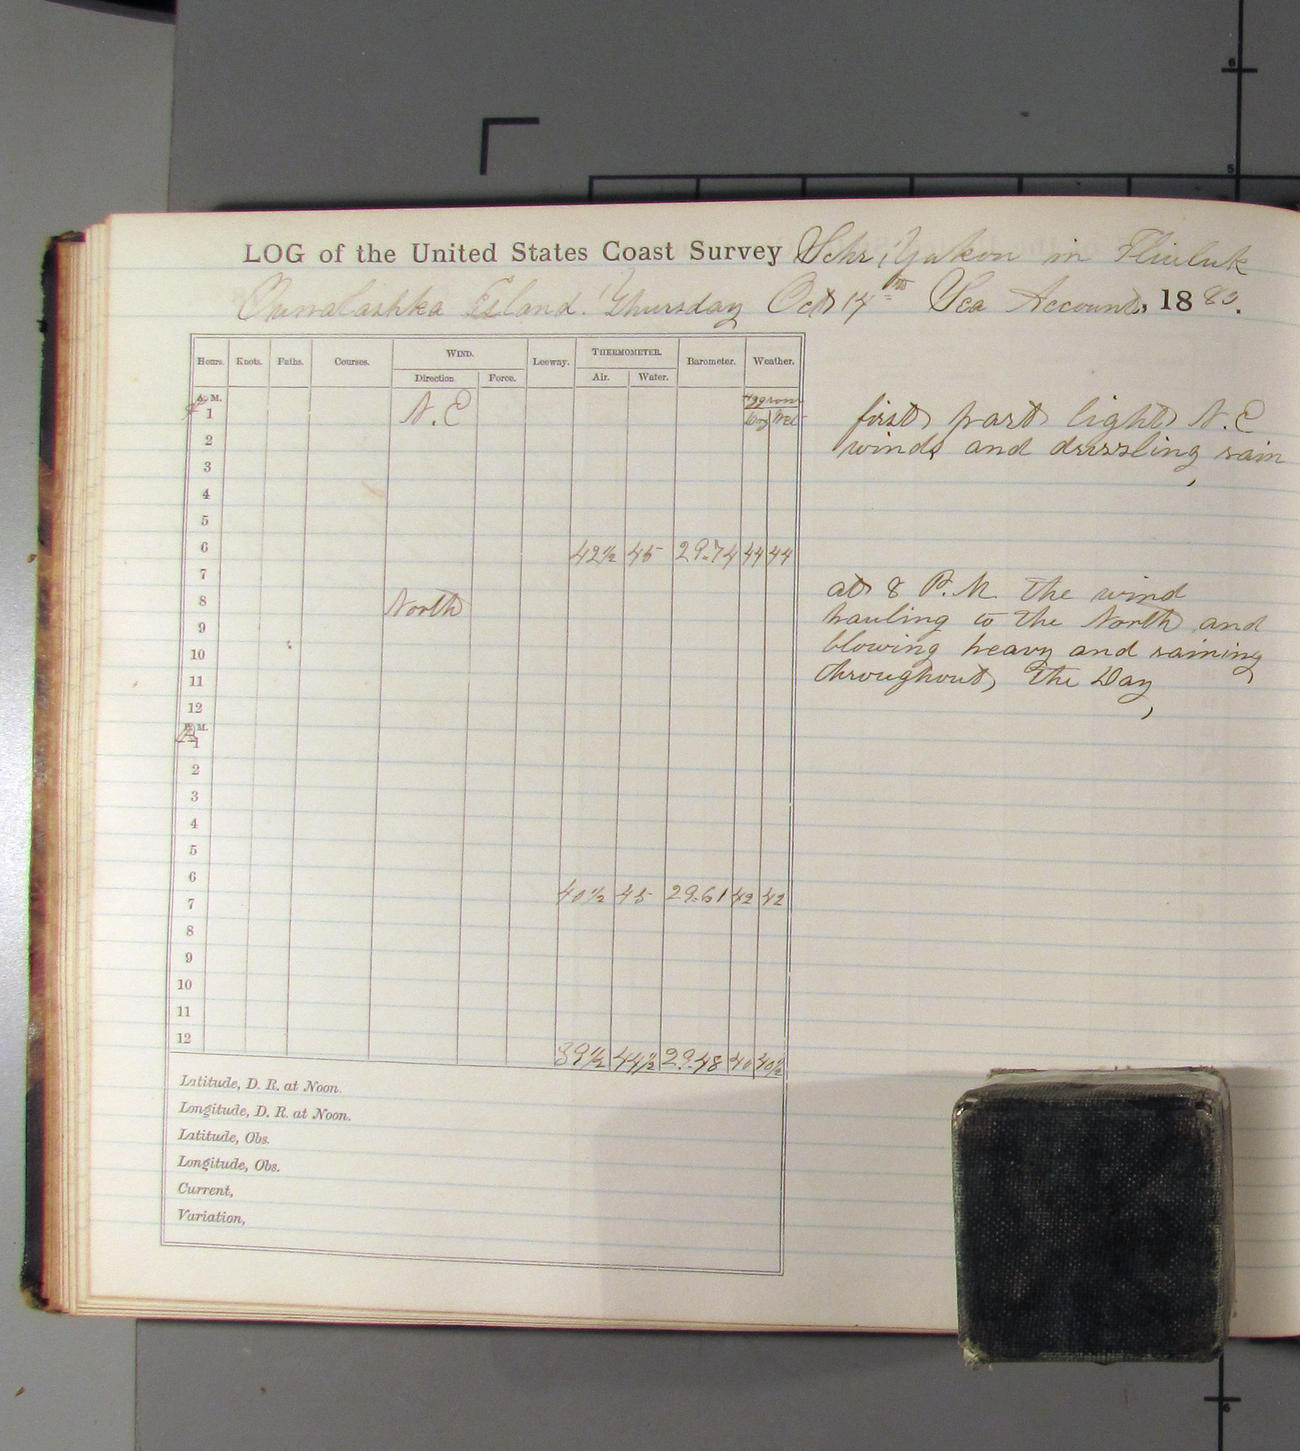 LOG of the United States Coast Survey Schr. Yukon in Iliuluk
Ounalashka Island. Thursday Oct 14th Sea Account, 1880.
Hours. Knots. Faths. Courses. WIND. Leeway. THERMOMETER. Barometer. Weather.
Direction. Force. Air. Water.
A. M. P Hygrom
1 N.E Dry Wet first part light N.E
2 winds and drizzling rain,
3
4
5
6 42½ 45 29.74 44 44
7 at 8 P.M. the wind
8 North hauling to the North and
9 blowing heavy and raining,
10 throughout, the Day,
11
12
P. M. A
1
2
3
4
5
6
7 40½ 45 29.61 42 42
8
9
10
11
12 39½ 44½ 29.48 40 40½
Latitude, D. R. at Noon.
Longitude, D. R. at Noon.
Latitude, Obs.
Longitude, Obs.
Current,
Variation,
6
5
6